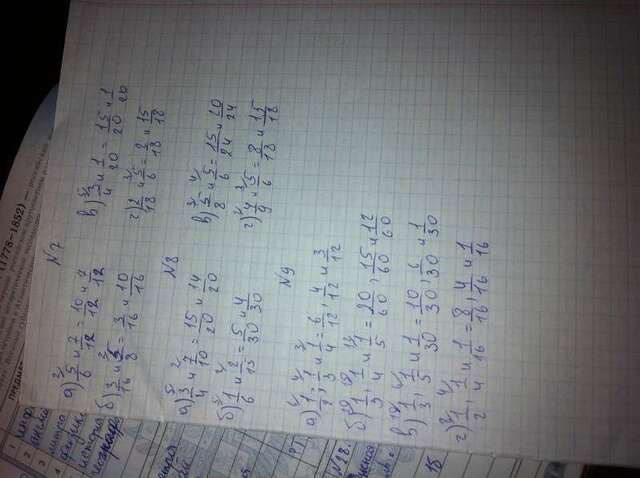 (1778–1852) —
№7
а) 2/ 5/6 и 7/12 = 10/12 и 7/12
б) 3/16 и 2/ 5/8 = 3/16 и 10/16
в) 5/ 3/4 и 1/20 = 15/20 и 1/20
г) 2/18 и 3/ 5/6 = 2/18 и 15/18
№8
а) 5/ 3/4 и 2/ 7/10 = 15/20 и 14/20
б) 5/ 1/6 и 2/ 2/15 = 5/30 и 4/30
в) 3/ 5/8 и 4/ 5/6 = 15/24 и 20/24
г) 2/ 4/9 и 3/ 5/6 = 8/18 и 15/18
№9
а) 6/ 1/2; 4/ 1/3 и 3/ 1/4 = 6/12, 4/12 и 3/12
б) 20/ 1/3, 15/ 1/4 и 12/ 1/5 = 20/60, 15/60 и 12/60
в) 10/ 1/3, 6/ 1/5 и 1/30 = 10/30, 6/30 и 1/30
г) 8/ 1/2, 4/ 1/4 и 1/16 = 8/16, 4/16 и 1/16